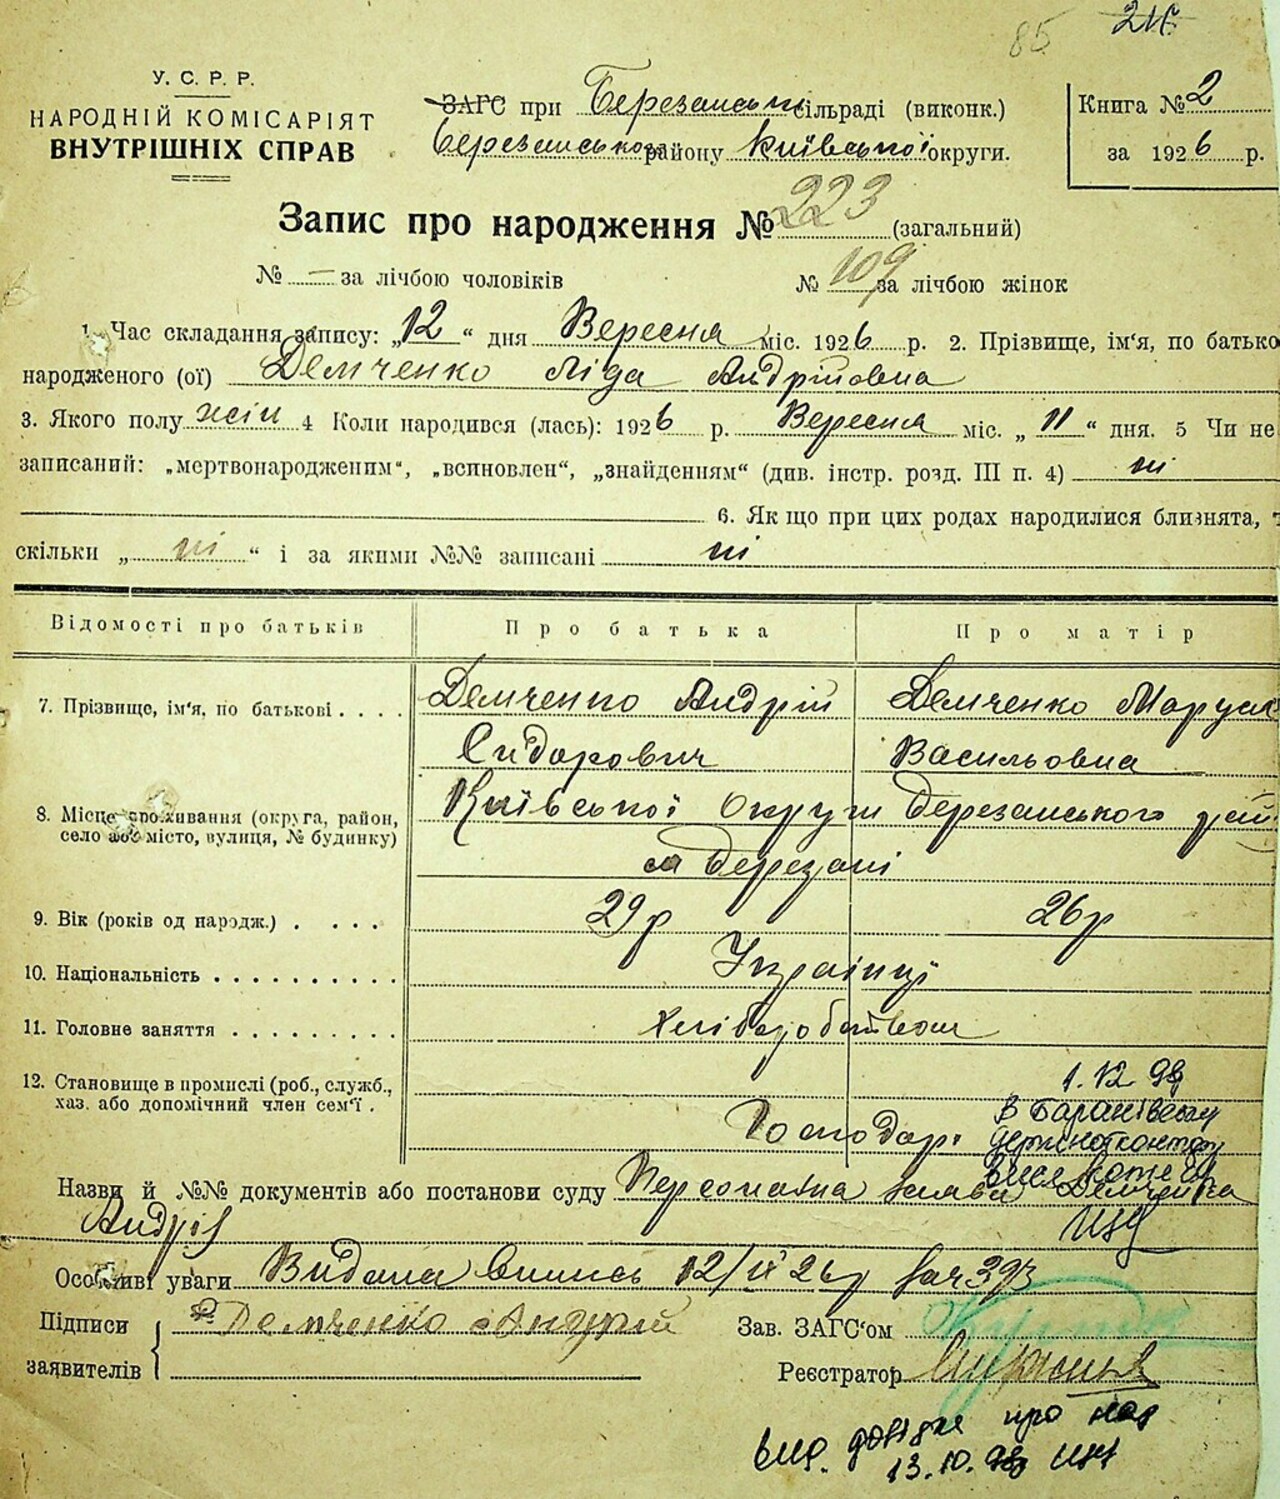 85 216
У. С. Р. Р.
НАРОДНІЙ КОМІСАРІЯТ
ВНУТРІШНІХ СПРАВ
ЗАГС при Березанській сільраді (виконк.)
Березанського району Київської округи.
Книга № 2
за 1926 р.
Запис про народження № 223 (загальний)
№ — за лічбою чоловіків № 109 за лічбою жінок
1. Час складання запису: „12“ дня Вересня міс. 1926 р. 2. Прізвище, ім'я, по батько
народженого (ої) Демченко Ліда Андрійовна
3. Якого полу жін 4 Коли народився (лась): 1926 р. Вересня міс. „11“ дня. 5 Чи не
записаний: „мертвонародженим“, „всиновлен“, „знайденням“ (див. інстр. розд. III п. 4) ні
6. Як що при цих родах народилися близнята, т
скільки „ні“ і за якими №№ записані ні
Відомості про батьків Про батька Про матір
7. Прізвище, ім'я, по батькові . . . . Демченко Андрій Демченко Маруся
Сидорович Васильовна
8. Місце проживання (округа, район,
село або місто, вулиця, № будинку)
Київської Округи Березанського рай
м Березані
9. Вік (років од народж.) . . . . 29 р 26 р
10. Національність . . . . . . . . . . Українці
11. Головне заняття . . . . . . . . . Хліборобством
12. Становище в промислі (роб., служб.,
хаз. або допомічний член сем'ї .
Господарі
1.12.98
в Баранівську
держнотконтору
Назви й №№ документів або постанови суду Персональна заява Демченка
Андрія
Особливі уваги Видана випись 12/IX 26 р за № 393
Підписи
заявителів
Демченко Андрій
Зав. ЗАГС'ом
Реєстратор
вид. довідка про нар
13.10.98